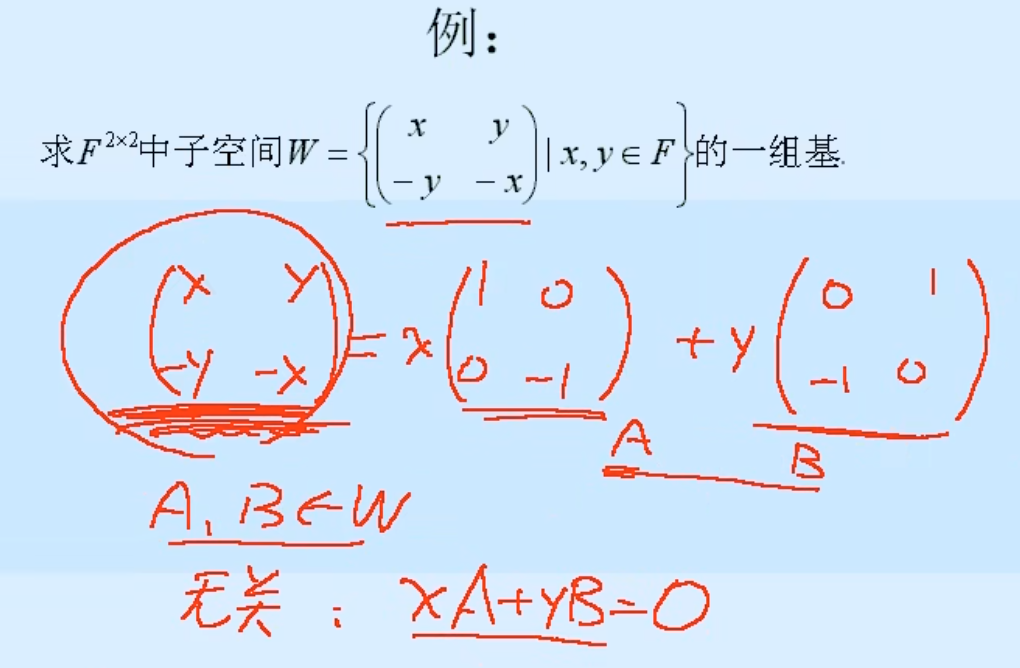 例：
求F^{2×2}中子空间W = { ( x y ; -y -x ) | x, y ∈ F }的一组基.
( x y ; -y -x ) = x ( 1 0 ; 0 -1 ) + y ( 0 1 ; -1 0 )
A B
A, B ∈ W
无关：xA+yB=0